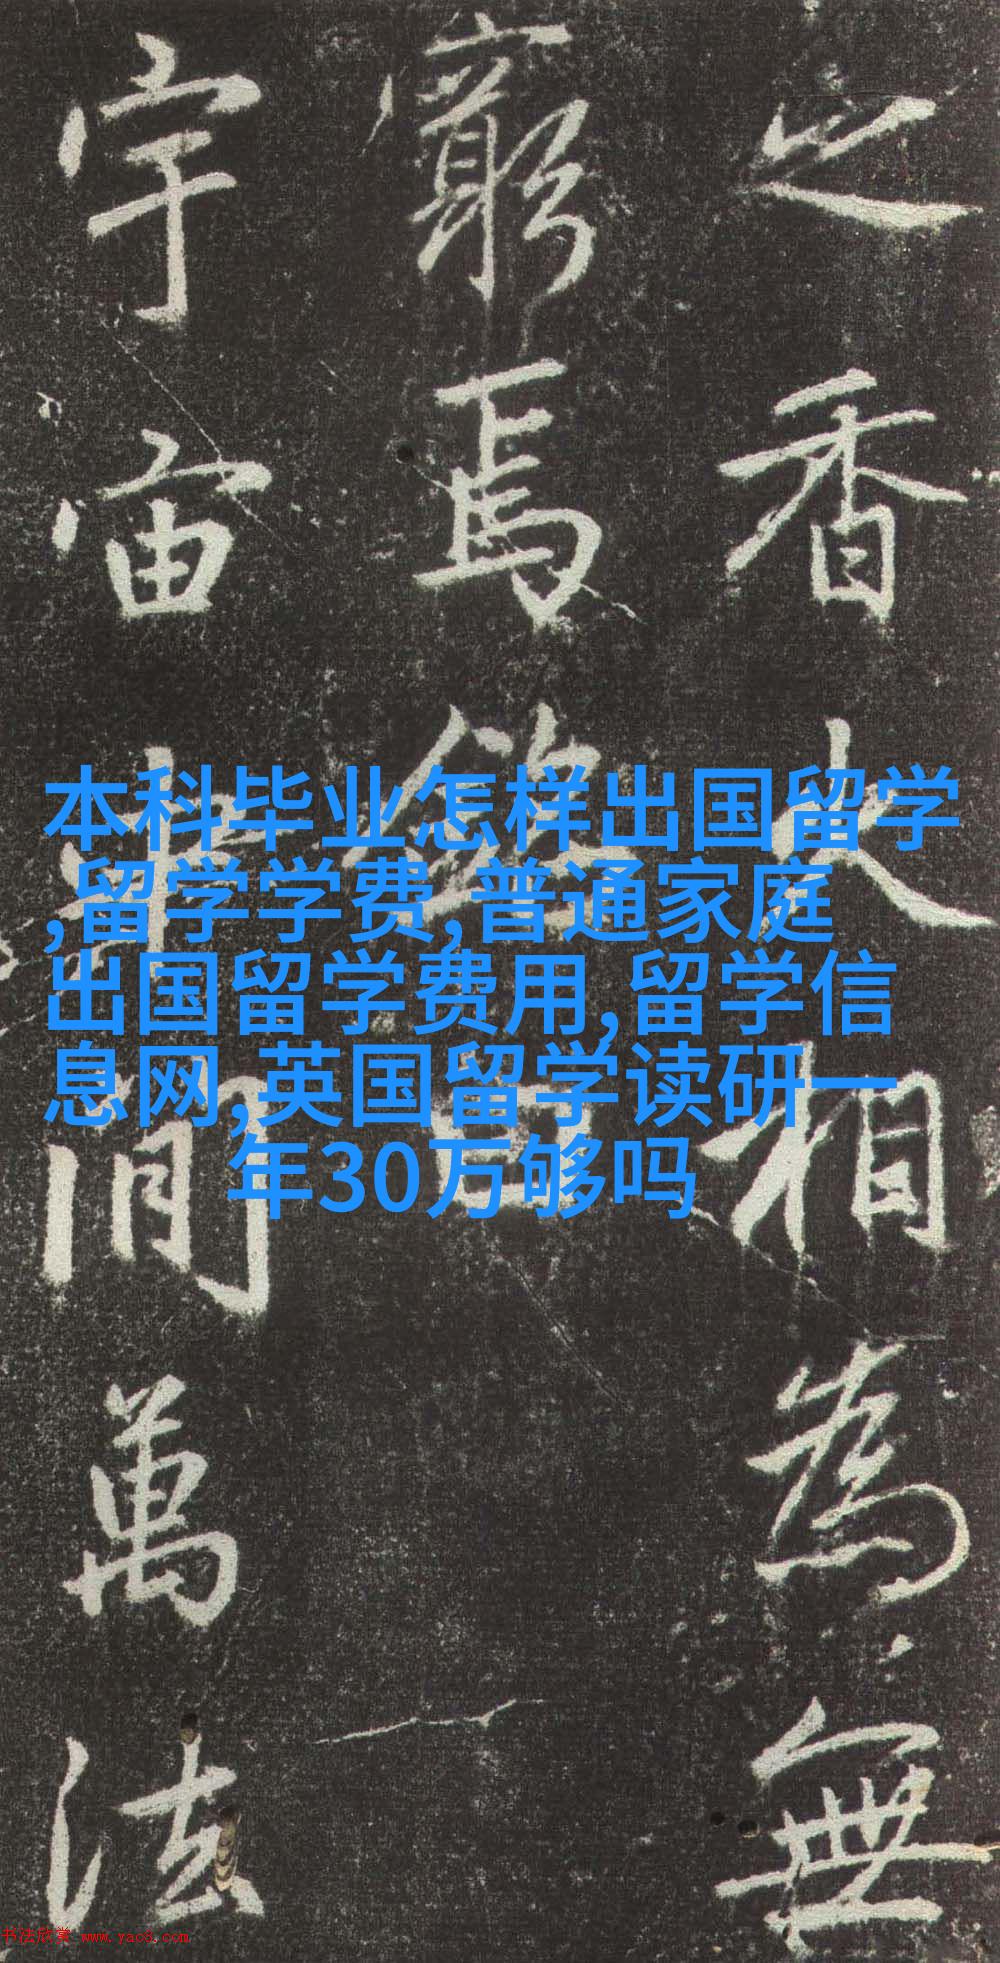 本科毕业怎样出国留学
,留学学费,普通家庭
出国留学费用,留学信
息网,英国留学读研一
年30万够吗
之香火相為無
窮焉銘曰
宇宙中間萬法
书法欣赏 www.yac8.com